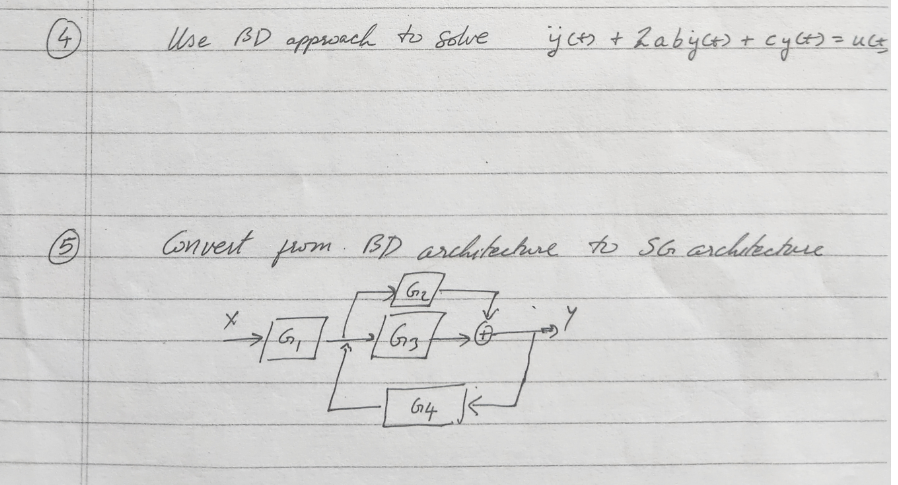 4 Use BD approach to solve ÿ(t) + 2abẏ(t) + cy(t) = u(t
5 Convert from BD architecture to SG architecture
G2
X G1 G3 + Y
G4